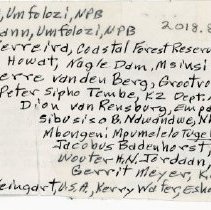 , Umfolozi, NPB
ann, Umfolozi, NPB 2018.8
erreird, Coastal Forest Reserv
Howat, Nagle Dam, Msinsi
erre vanden Berg, Grootvo
Peter Sipho Tembe, KZ Dept.
Dion van Rensburg, Empa
Sibusiso B. Ndwandwe, N
Mbongeni Mpumelelo Tuge
Jacobus Badenhorst,
Wouter H.N. Jordaan,
Gerrit Meyer, K
eingart, U.S.A., Kerry Water, Esh